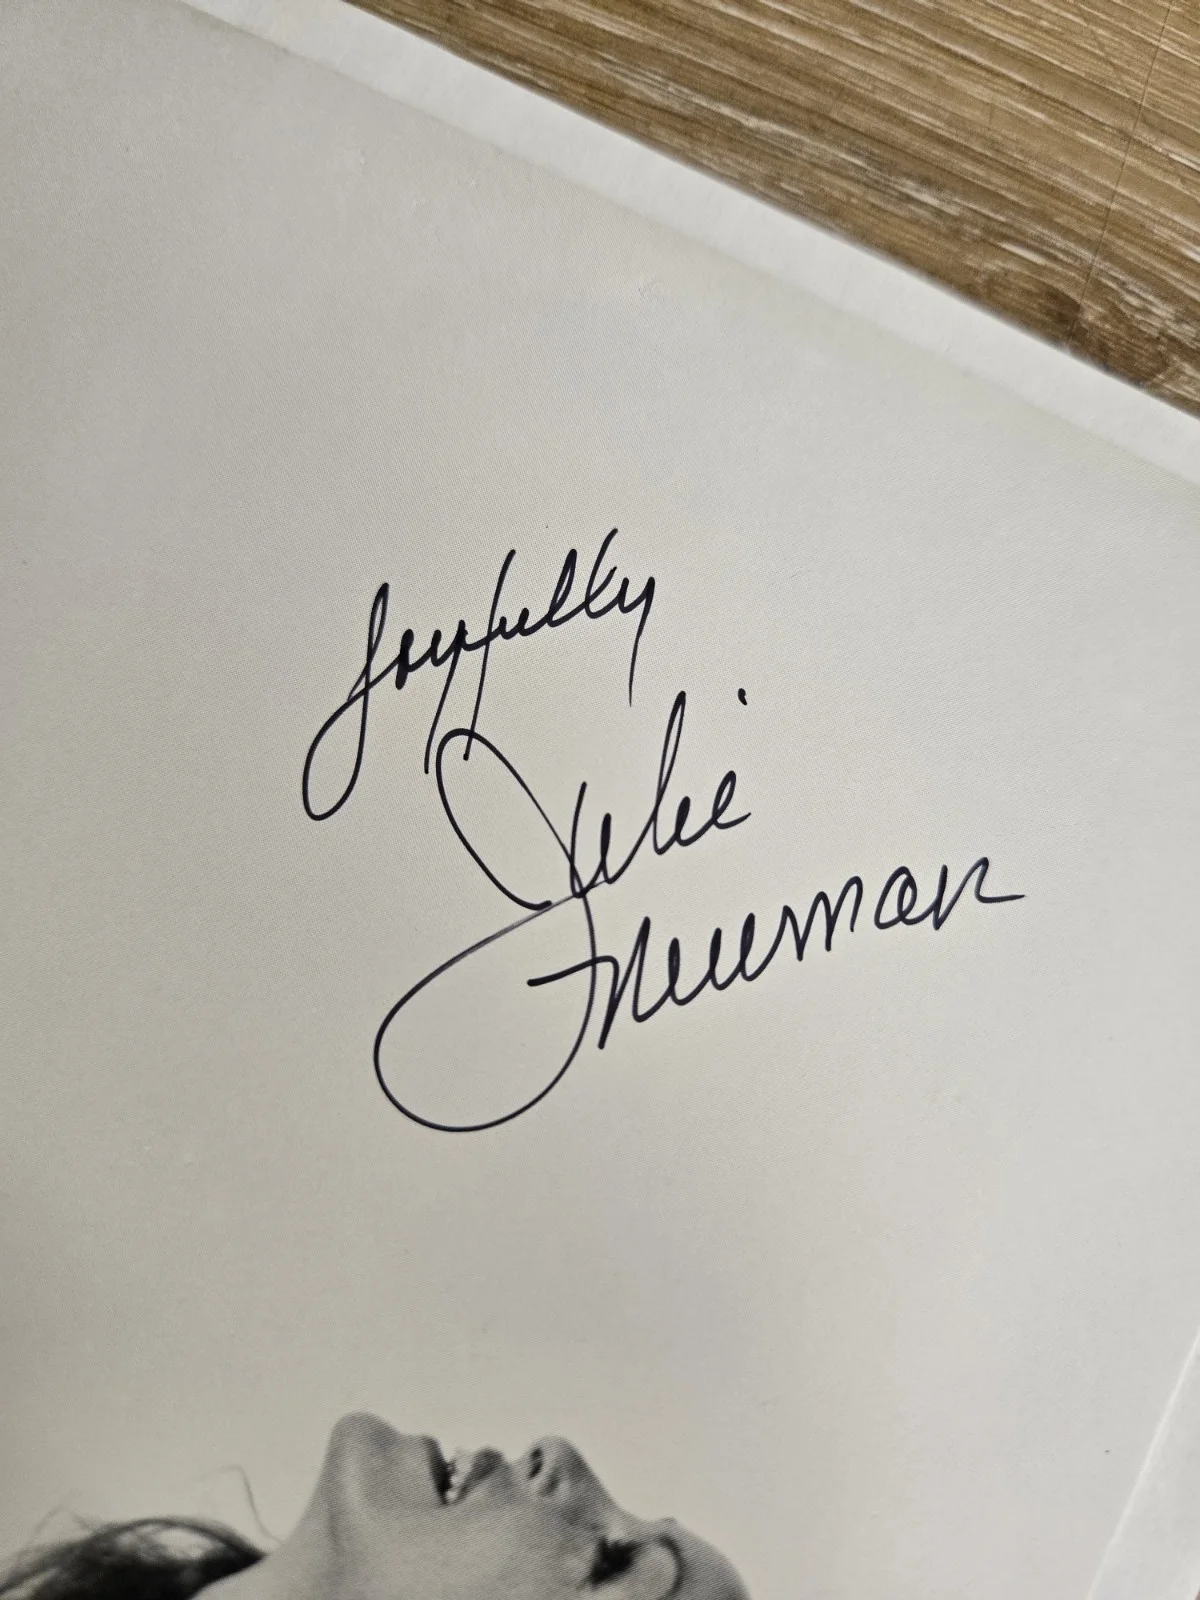 Joyfully
Julie
Newman